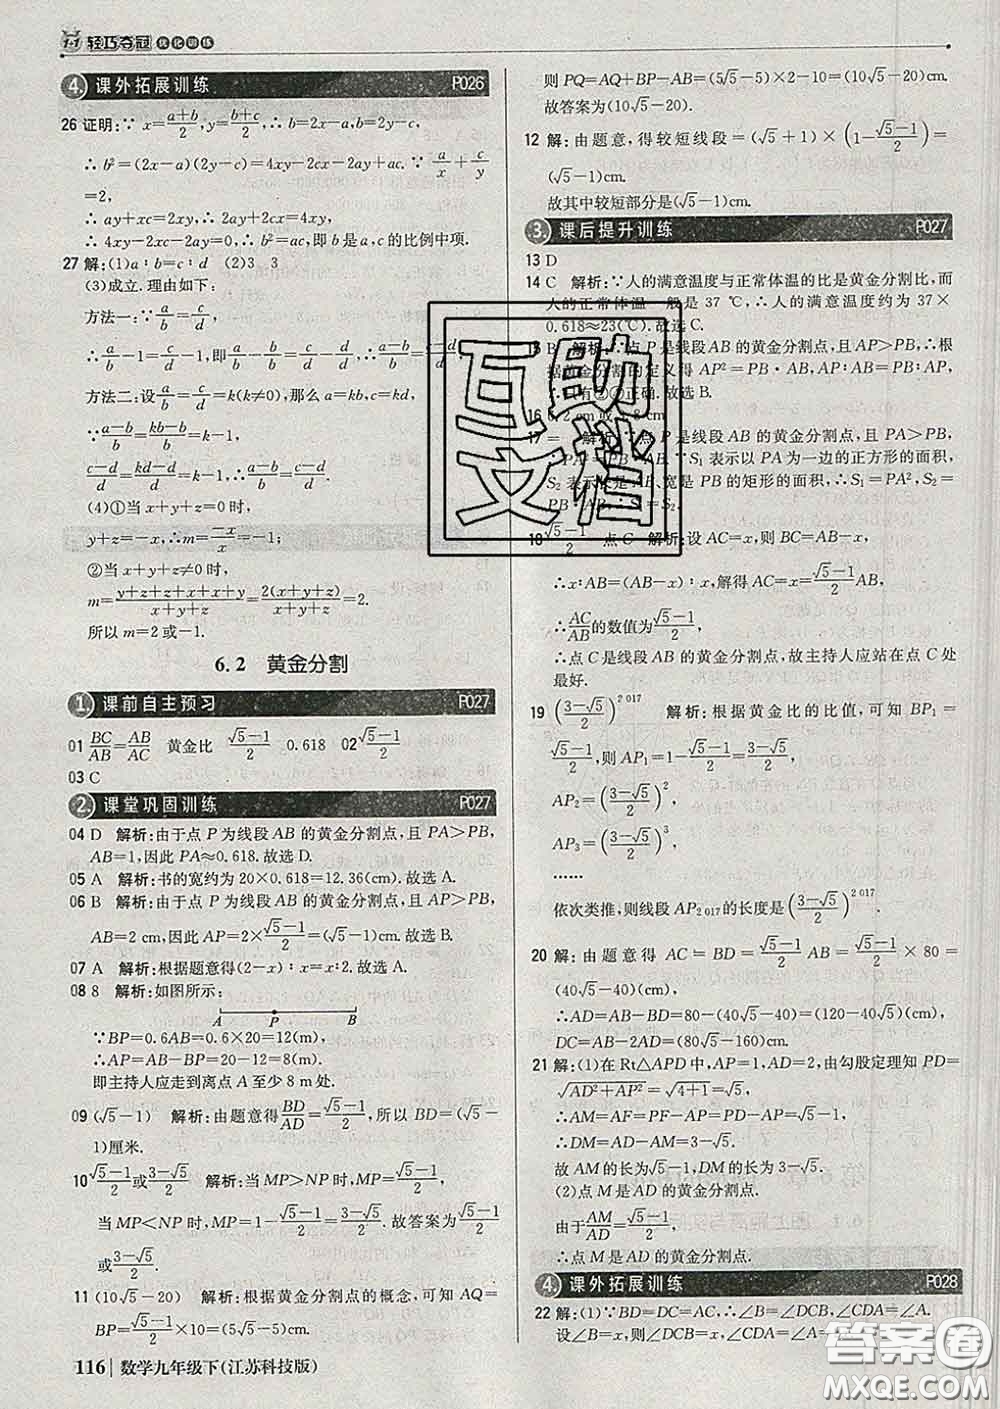 1+1 轻巧夺冠 优化训练
4. 课外拓展训练 P026
26 证明:∵ x=(a+b)/2,y=(b+c)/2,∴b=2x-a,b=2y-c,
∴ b²=(2x-a)(2y-c)=4xy-2cx-2ay+ac. ∵ a/x + c/y
=2,
∴ ay+xc=2xy,∴ 2ay+2cx=4xy,
∴ 4xy-2cx-2ay=0,∴ b²=ac,即 b 是 a,c 的比例中项.
27 解:(1)a∶b=c∶d (2)3 3
(3)成立. 理由如下:
方法一:∵ a/b=c/d,
∴ a/b-1=c/d-1,即 a/b-b/b=c/d-d/d,∴ (a-b)/b=(c-d)/d.
方法二:设 a/b=c/d=k(k≠0),那么 a=kb,c=kd,
∵ (a-b)/b=(kb-b)/b=k-1,
(c-d)/d=(kd-d)/d=k-1,∴ (a-b)/b=(c-d)/d.
(4)①当 x+y+z=0 时,
y+z=-x,∴m=(-x)/x=-1;
②当 x+y+z≠0 时,
m=(y+z+z+x+x+y)/(x+y+z)=2(x+y+z)/(x+y+z)=2.
所以 m=2 或-1.
6.2 黄金分割
1. 课前自主预习 P027
01 BC/AB=AB/AC 黄金比 (√5-1)/2 0.618 02 (√5-1)/2
03 C
2. 课堂巩固训练 P027
04 D 解析:由于点 P 为线段 AB 的黄金分割点,且 PA>PB,
AB=1,因此 PA≈0.618. 故选 D.
05 A 解析:书的宽约为 20×0.618=12.36(cm). 故选 A.
06 B 解析:由于点 P 为线段 AB 的黄金分割点,且 PA>PB,
AB=2 cm,因此 PA=2×(√5-1)/2=(√5-1)cm. 故选 B.
07 A 解析:根据题意得(2-x)∶x=x∶2. 故选 A.
08 8 解析:如图所示:
A P B
∵BP=0.6AB=0.6×20=12(m),
∴AP=AB-BP=20-12=8(m).
即主持人应走到离点 A 至少 8 m 处.
09 (√5-1) 解析:由题意得 BD/AD=(√5-1)/2,所以 BD=(√5-
1)厘米.
10 (√5-1)/2 或 (3-√5)/2 解析:当 MP>NP 时,MP=(√5-1)/2,
当 MP<NP 时,MP=1-(√5-1)/2=(3-√5)/2. 故答案为 (√5-1)/2
或 (3-√5)/2.
11 (10√5-20) 解析:根据黄金分割点的概念,可知 AQ=
BP=(√5-1)/2×10=(5√5-5)cm.
116 数学九年级下(江苏科技版)
则 PQ=AQ+BP-AB=(5√5-5)×2-10=(10√5-20)cm.
故答案为(10√5-20).
12 解:由题意,得较短线段=(√5+1)×(1-(√5-1)/2)=
(√5-1)cm.
故其中较短部分是(√5-1)cm.
3. 课后提升训练 P027
13 D
14 C 解析:∵人的满意温度与正常体温的比是黄金分割比,而
人的正常体温一般是 37 ℃,∴人的满意温度约为 37×
0.618≈23(℃). 故选 C.
15 B 解析:∵点 P 是线段 AB 的黄金分割点,且 AP>PB,∴根
据黄金分割的定义得 AP²=PB·AB,AP∶AB=PB∶AP,
∴只有②③正确. 故选 B.
16
17 = 解析:∵点 P 是线段 AB 的黄金分割点,且 PA>PB,
∴PA²=PB·AB. ∵S₁ 表示以 PA 为一边的正方形的面积,
S₂ 表示长是 AB、宽是 PB 的矩形的面积,∴S₁=PA²,S₂=
PB·AB,∴S₁=S₂.
18 (√5-1)/2 点 C 解析:设 AC=x,则 BC=AB-x,
∴x∶AB=(AB-x)∶x,解得 AC=x=(√5-1)/2 AB,
∴AC/AB 的数值为 (√5-1)/2,
∴点 C 是线段 AB 的黄金分割点,故主持人应站在点 C 处
最好.
19 ((3-√5)/2)^2 017 解析:根据黄金比的比值,可知 BP₁=
(√5-1)/2,则 AP₁=1-(√5-1)/2=(3-√5)/2,
AP₂=((3-√5)/2)²,
AP₃=((3-√5)/2)³,
……
依次类推,则线段 AP₂ ₀₁₇的长度是((3-√5)/2)^2 017.
20 解:由题意得 AC=BD=(√5-1)/2 AB=(√5-1)/2×80=
(40√5-40)(cm),
∴AD=AB-BD=80-(40√5-40)=(120-40√5)(cm),
DC=AB-2AD=(80√5-160)cm.
21 解:(1)在 Rt△APD 中,AP=1,AD=2,由勾股定理知 PD=
√(AD²+AP²)=√(4+1)=√5,
∴AM=AF=PF-AP=PD-AP=√5-1,
∴DM=AD-AM=3-√5.
故 AM 的长为√5-1,DM 的长为 3-√5.
(2)点 M 是 AD 的黄金分割点.
由于 AM/AD=(√5-1)/2,
∴点 M 是 AD 的黄金分割点.
4. 课外拓展训练 P028
22 解:(1)∵BD=DC=AC,∴∠B=∠DCB,∠CDA=∠A.
设∠B=x,则∠DCB=
互助
文档
答案圈
MXQE.COM